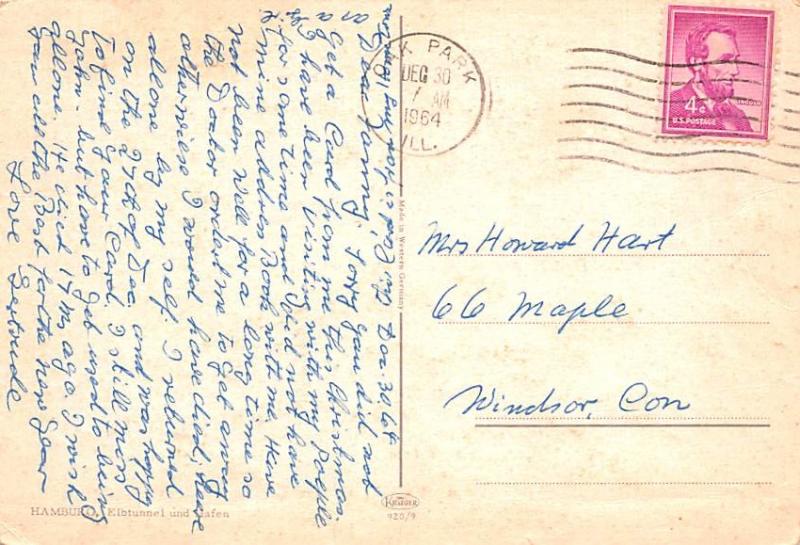 Dec. 30. 64
Dear Fanny, Sorry you did not
Get a Card from me this Christmas.
as I have been Visiting with my People
for some time and did not have
mine address Book with me. Have
not been well for a long time so
the Doctor orderd me to get away
otherwiese I would have died, here
allone by my self. I returned
on the 27th of Dec. and was happy
to find your Card. I still miss
John. but have to get used to being
allone. He died 14 m. ago. I wish
you all the Best for the new year
Love Gertrude
HAMBURG, Elbtunnel und Hafen
Made in Western Germany
KRÜGER
920/9
OAK PARK
DEC 30
7 AM
1964
ILL.
LINCOLN
4¢
U.S. POSTAGE
Mrs Howard Hart
66 Maple
Windsor, Con